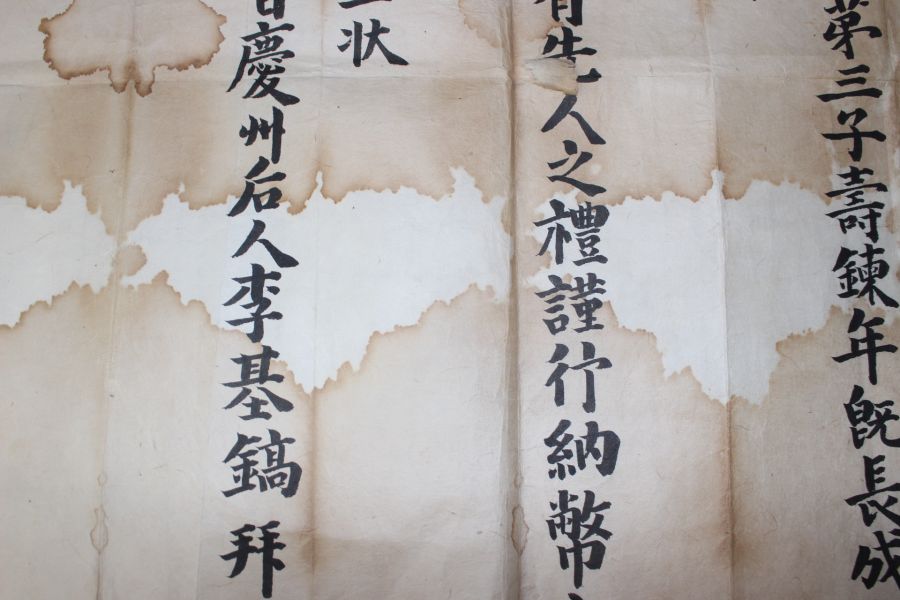 第三子壽鍊年旣長成
有先人之禮謹行納幣
狀
慶州后人李基鎬 拜